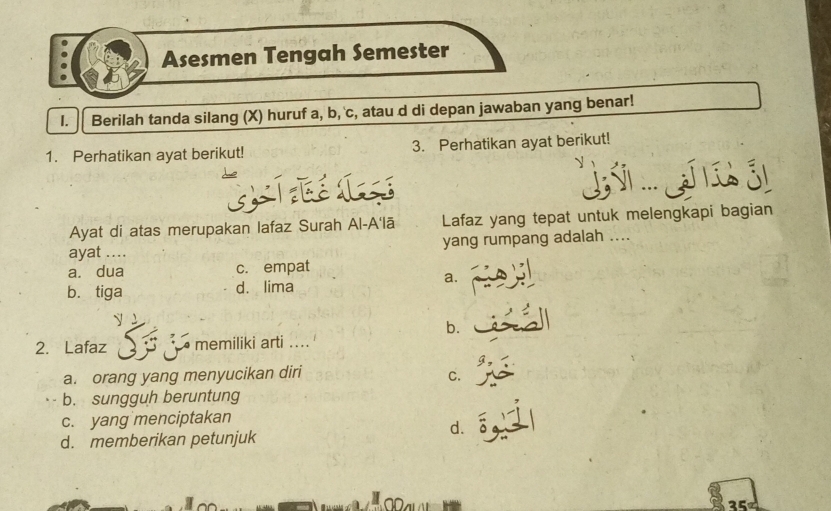 Asesmen Tengah Semester
I. Berilah tanda silang (X) huruf a, b, c, atau d di depan jawaban yang benar!
1. Perhatikan ayat berikut!
فَجَعَلَهٗ غُثَاۤءً اَحْوٰى
Ayat di atas merupakan lafaz Surah Al-A'lā
ayat ....
a. dua
c. empat
b. tiga
d. lima
2. Lafaz مَنْ تَزَكّٰى memiliki arti ....
a. orang yang menyucikan diri
b. sungguh beruntung
c. yang menciptakan
d. memberikan petunjuk
3. Perhatikan ayat berikut!
اِنَّ هٰذَا لَفِى ... الْاُوْلٰى
Lafaz yang tepat untuk melengkapi bagian
yang rumpang adalah ....
a. اِبْرٰهِيْمَ
b. الصُّحُفِ
c. خَيْرٌ
d. الْحَيٰوةَ
35